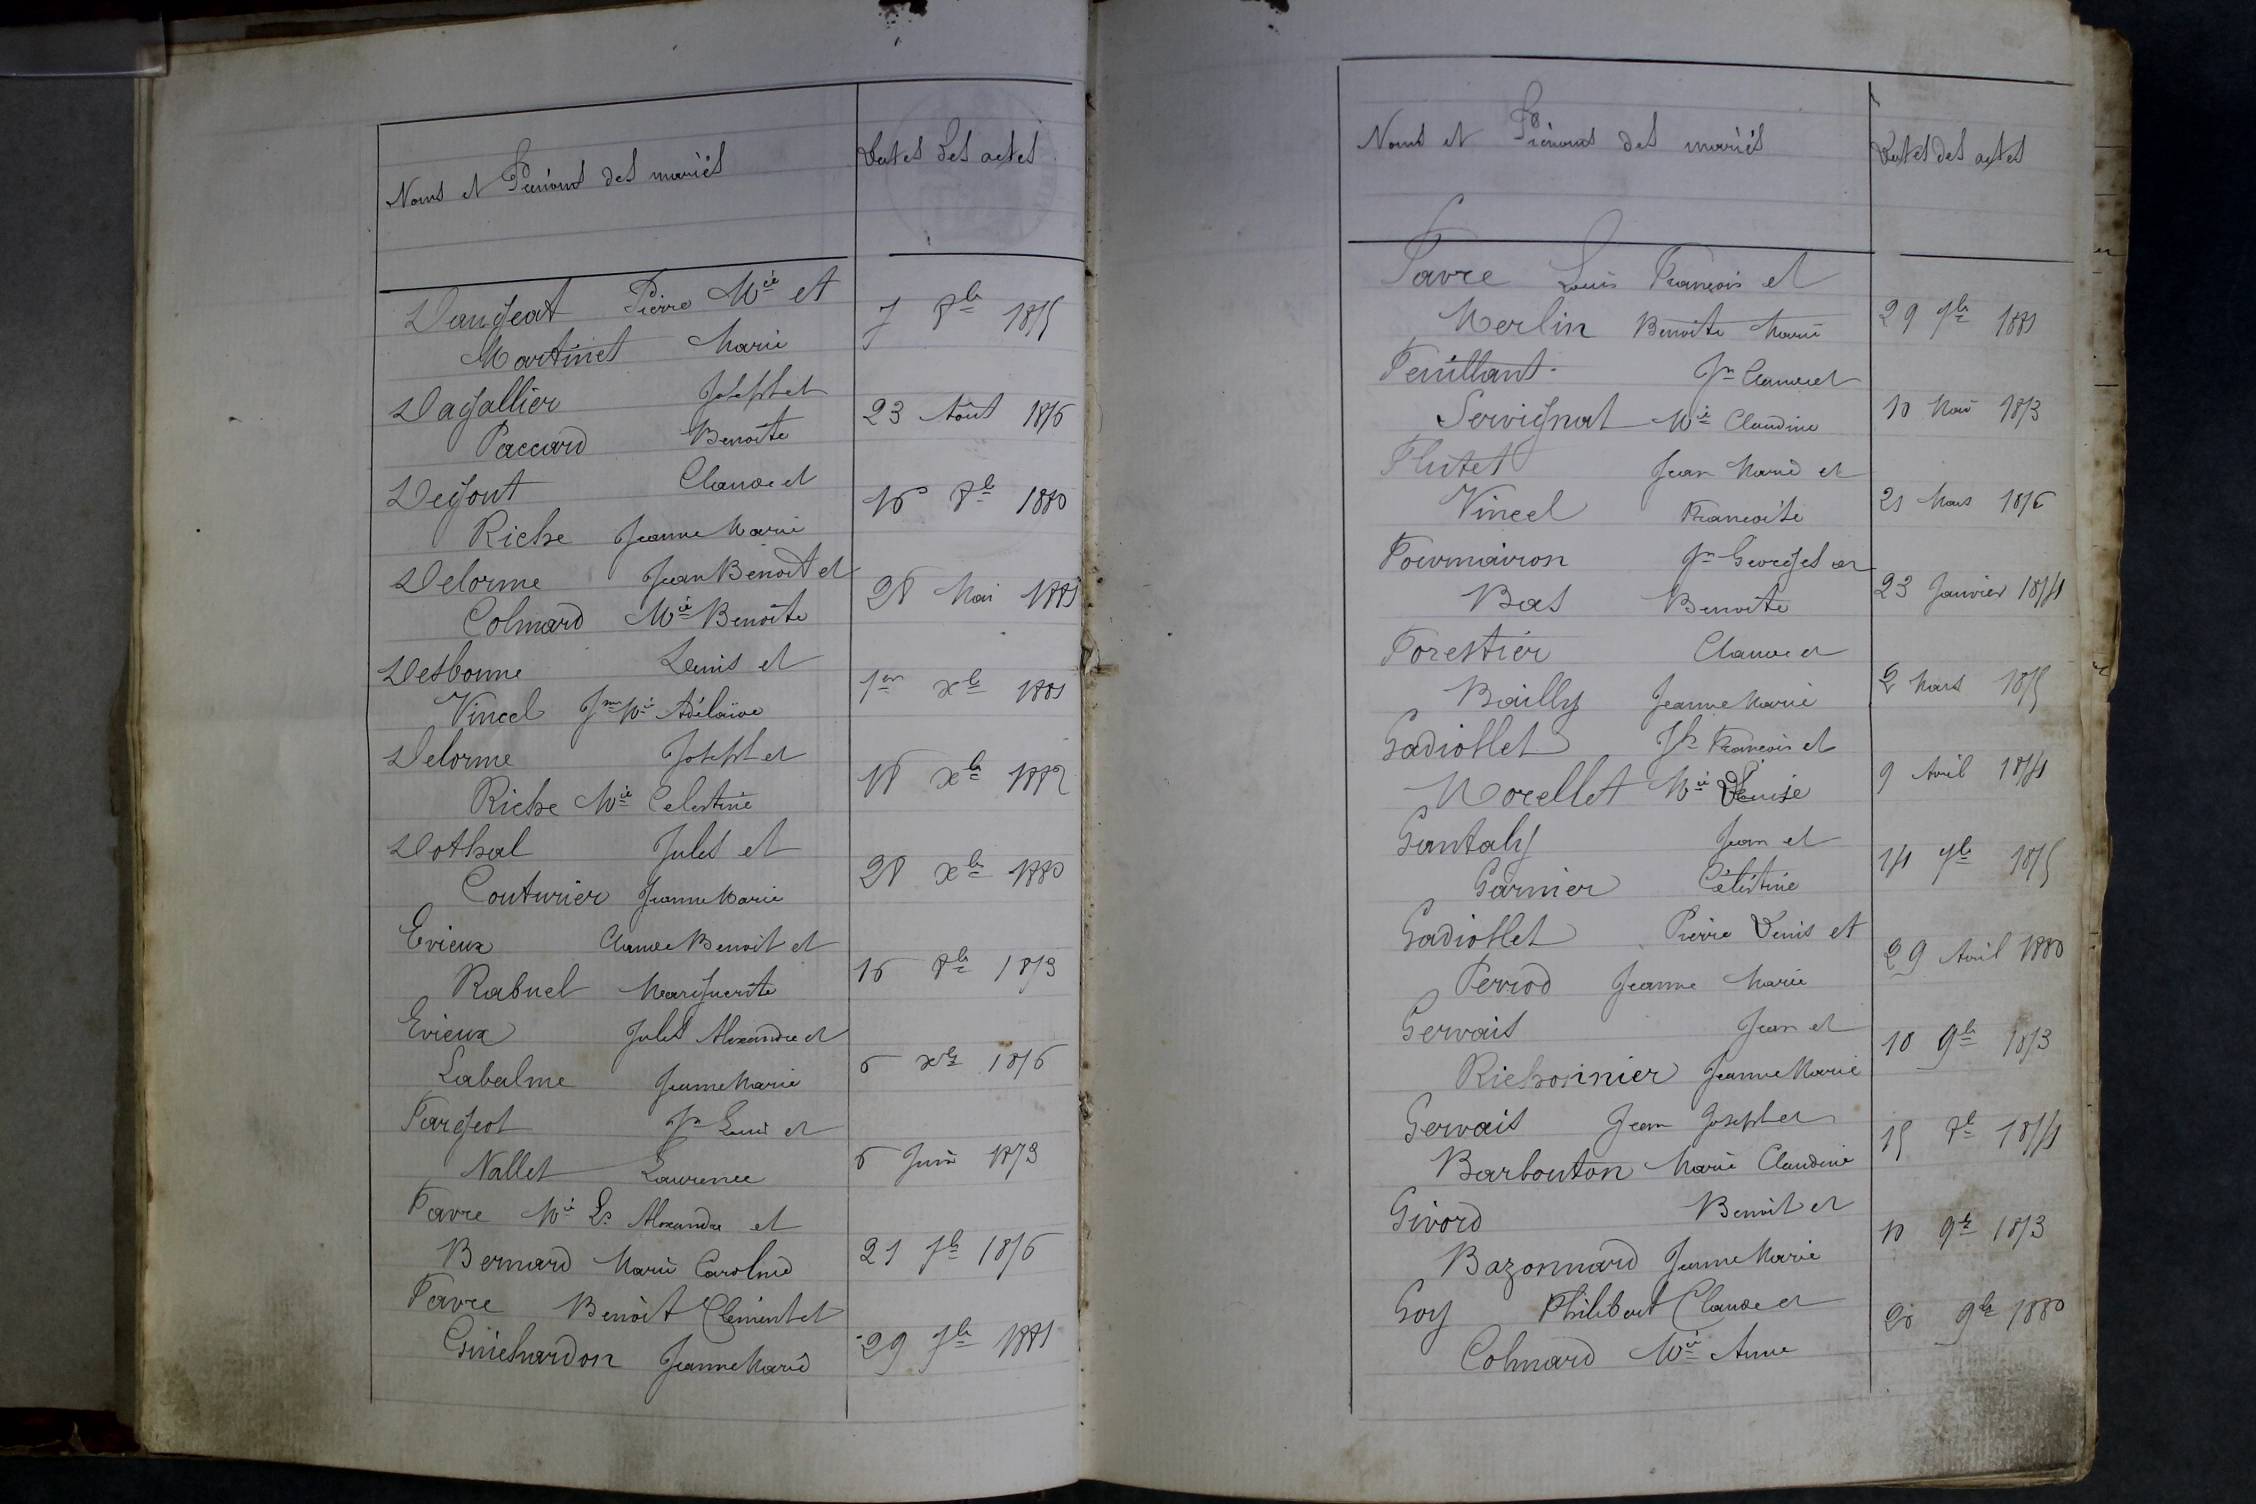 Noms et Prénoms des mariés
Dates des actes
Daujeat Pierre Mie et
Martinet Marie
7 8bre 1875
Dagallier Joseph et
Paccard Benoîte
23 Août 1876
Degout Claude et
Riche Jeanne Marie
16 8bre 1880
Delorme Jean Benoit et
Colmard Mie Benoîte
28 Mai 1881
Desbonne Denis et
Vincel Jne Mie Adélaïde
1er xbre 1881
Delorme Joseph et
Riche Mie Celestine
18 xbre 1882
Dothal Jules et
Couturier Jeanne Marie
28 xbre 1880
Evieux Claude Benoit et
Rabuel Marguerite
16 8bre 1873
Evieux Jules Alexandre et
Labalme Jeanne Marie
6 xbre 1876
Fargeot Jn Louis et
Nallet Laurence
6 Juin 1873
Favre Mie Ls Alexandre et
Bernard Marie Caroline
21 7bre 1876
Favre Benoît Clément et
Guichardon Jeanne Marie
29 7bre 1881
Noms et Prénoms des mariés
Dates des actes
Favre Louis François et
Merlin Benoîte Marie
29 7bre 1881
Feuillant Jn Claude et
Servignat Mie Claudine
10 Mai 1873
Flutet Jean Marie et
Vincel Françoise
21 Mars 1876
Fourmairon Jn Georges et
Bas Benoîte
23 Janvier 1874
Forestier Claude et
Bailly Jeanne Marie
2 Mars 1875
Gadiollet Jh François et
Morellet Mie Denise
9 Avril 1874
Gantaly Jean et
Garnier Célestine
14 7bre 1875
Gadiollet Pierre Denis et
Perrod Jeanne Marie
29 Avril 1880
Gervais Jean et
Richonnier Jeanne Marie
10 9bre 1873
Gervais Jean Joseph et
Barbouton Marie Claudine
15 7bre 1874
Givord Benoit et
Bazonnard Jeanne Marie
10 9bre 1873
Goy Philibert Claude et
Colmard Mie Anne
20 9bre 1880